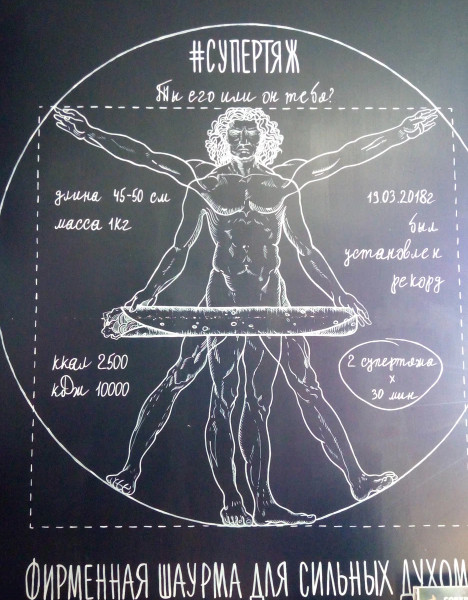 #СУПЕРТЯЖ
Ты его или он тебя?
длина 45-50 см
масса 1кг
19.03.2018г
был
установлен
рекорд
ккал 2500
кДж 10000
2 супертяжа
х
30 мин
ФИРМЕННАЯ ШАУРМА ДЛЯ СИЛЬНЫХ ДУХОМ